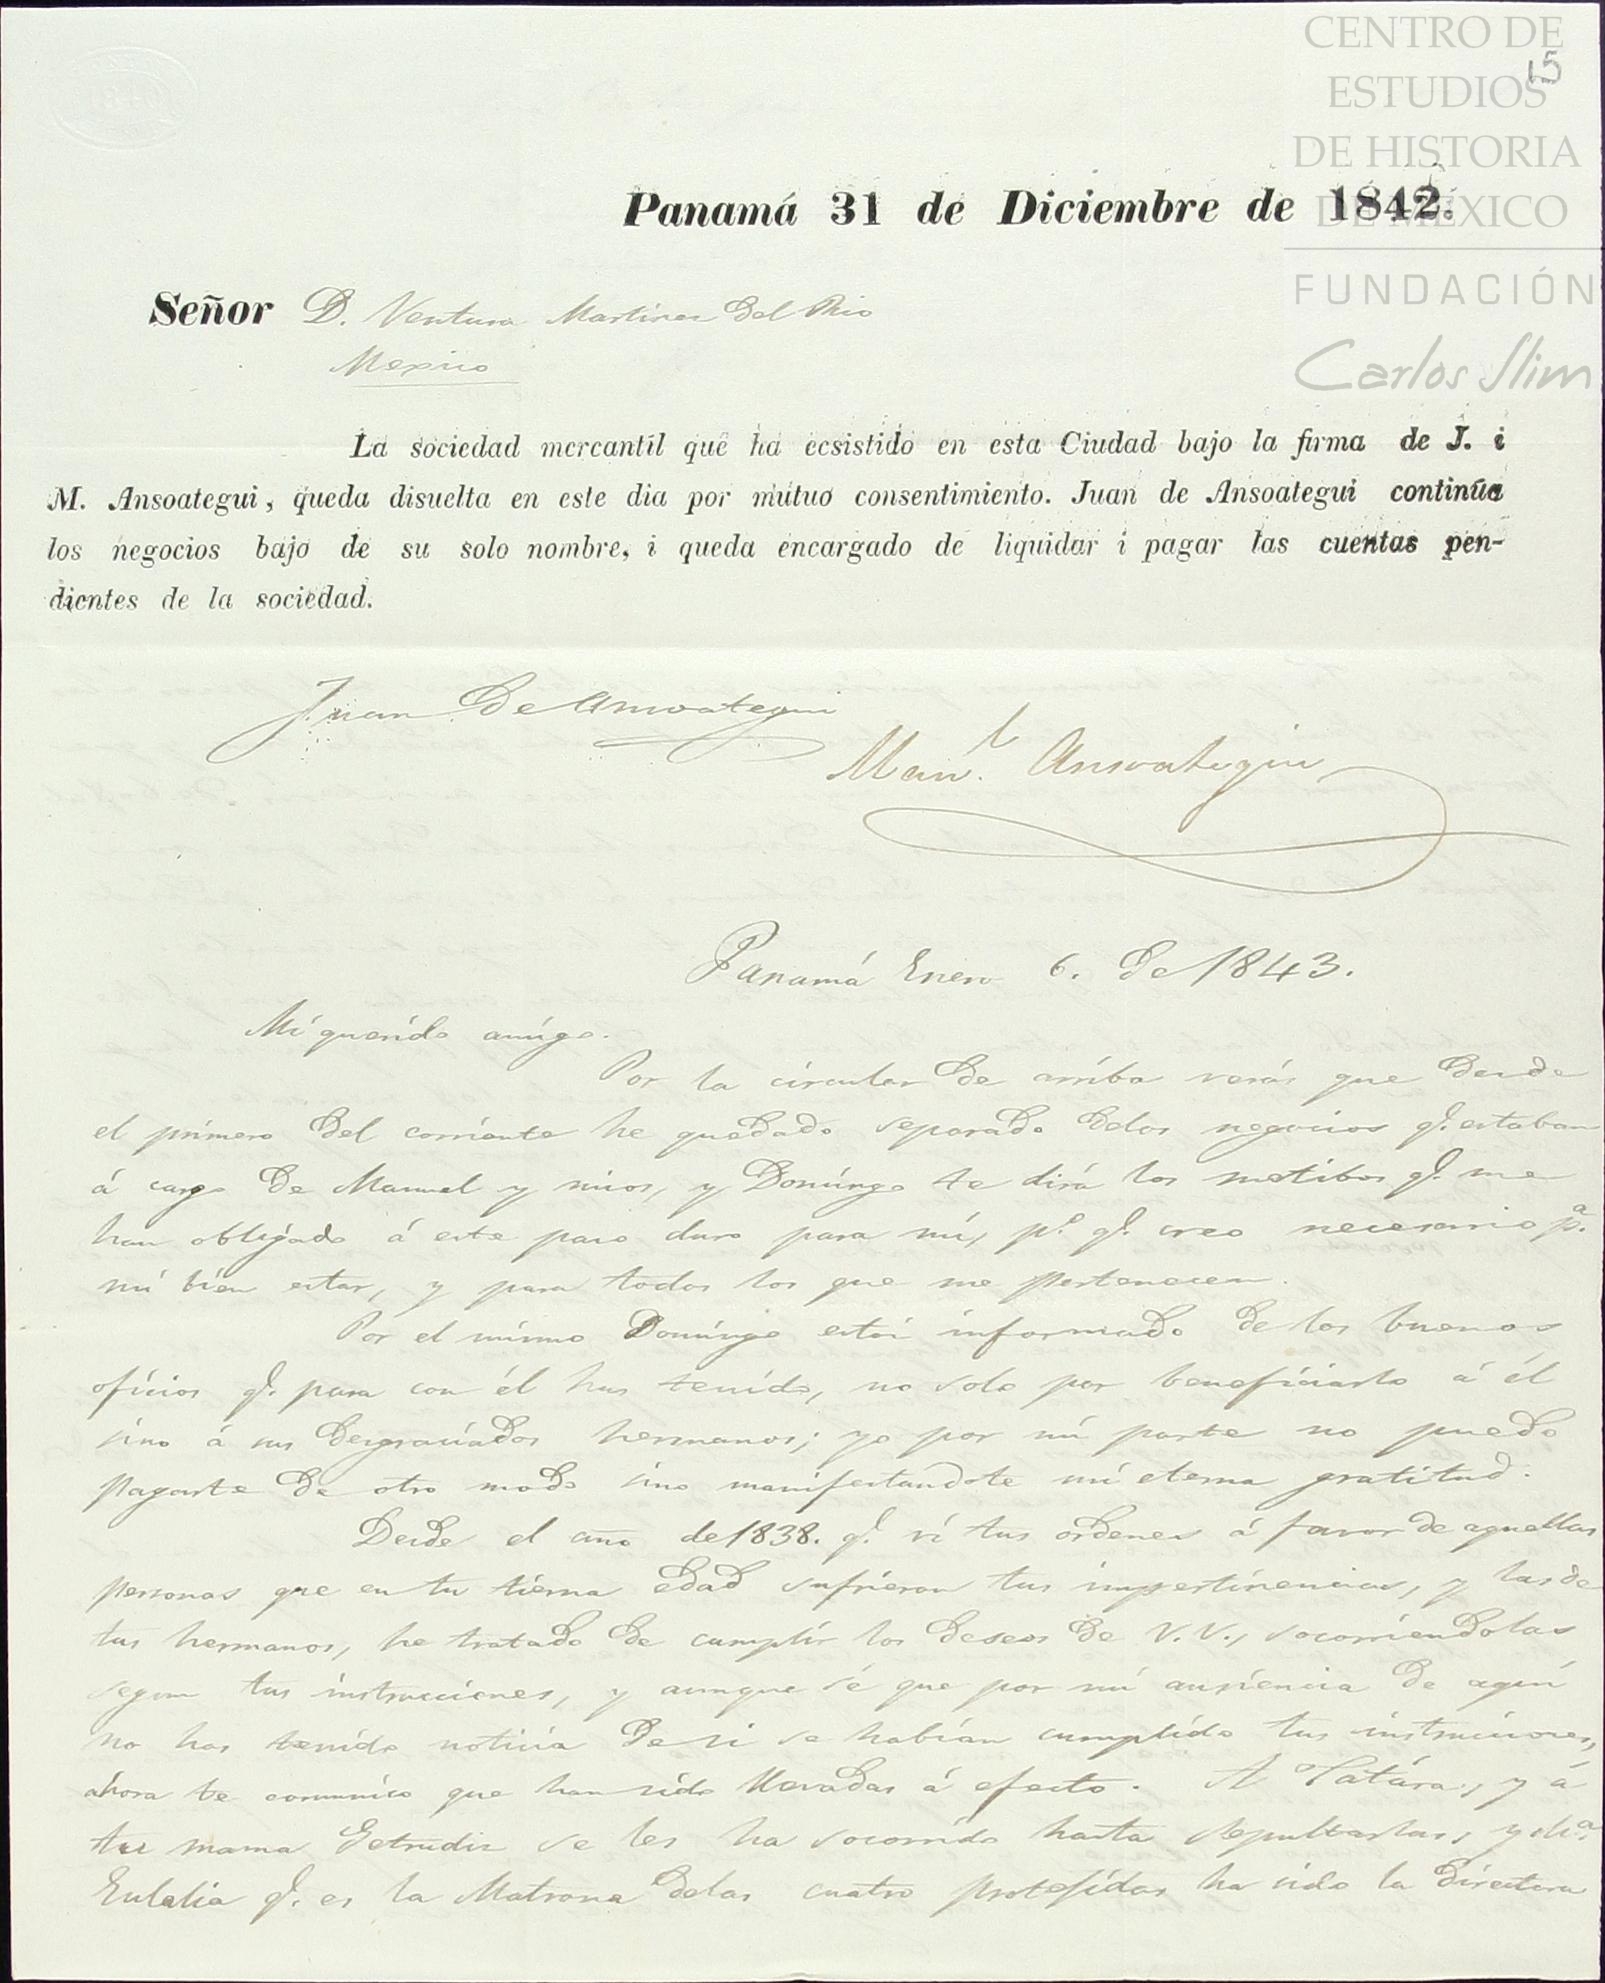 CENTRO DE
ESTUDIOS
DE HISTORIA
DE MÉXICO
FUNDACIÓN
Carlos Slim
15
Panamá 31 de Diciembre de 1842.
Señor D. Ventura Martinez del Rio
Mexico
La sociedad mercantil que ha ecsistido en esta Ciudad bajo la firma de J. i
M. Ansoategui, queda disuelta en este dia por mutuo consentimiento. Juan de Ansoategui continúa
los negocios bajo de su solo nombre, i queda encargado de liquidar i pagar las cuentas pen-
dientes de la sociedad.
Juan de Ansoategui
Man.l Ansoategui
Panamá Enero 6. de 1843.
Mi querido amigo.
Por la circular de arriba verás que desde
el primero del corriente he quedado separado delos negocios q.e estaban
á cargo de Manuel y mios, y Domingo te dirá los motibos q.e me
han obligado á este paso duro para mí, p.o q.e creo necesario p.a
mi bien estar, y para todos los que me pertenecen.
Por el mismo Domingo estoi informado de los buenos
oficios q.e para con él has tenido, no solo por beneficiarlo á él
sino á sus desgraciados hermanos; yo por mi parte no puedo
pagarte de otro modo sino manifestandote mi eterna gratitud.
Desde el año de 1838. q.e ví tus ordenes á favor de aquellas
personas que en tu tierna edad sufrieron tus impertinencias, y las de
tus hermanos, he tratado de cumplir los deseos de V.V., socorriendolas
segun tus instrucciones, y aunque sé que por mi ausiencia de aquí
no has tenido noticia de si se habían cumplido tus instruciones,
ahora te comunico que han sido llevadas á efecto. A Tatára, y á
tu mama Getrudis se les ha socorrido hasta sepultarlas, y
Eulalia q.e es la Matrona delas cuatro protejidas ha sido la directora